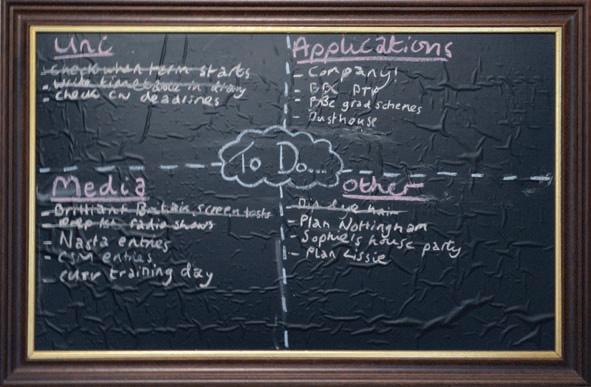 Uni
Check when term starts
Write timetable in diary
Check CW deadlines
Applications
Company!
BBC
BBC grad schemes
Dusthouse
To Do...
Media
Brilliant Britain screen tests
Prep 1st radio shows
Nasta entries
CSM entries
CUTV training day
Other
Dip dye hair
Plan Nottingham
Sophie's house party
Plan Lissie